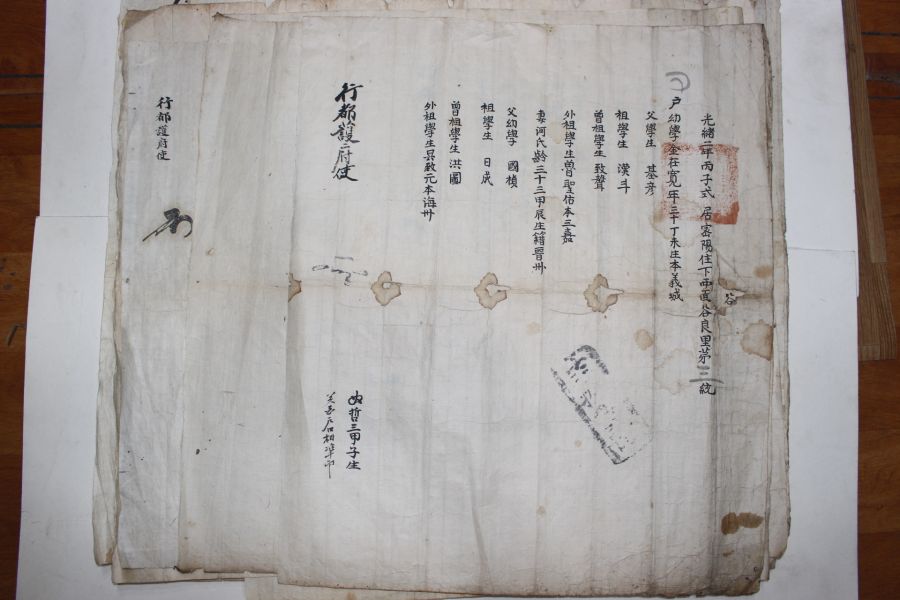 光緒二年丙子式 居密陽住下西面谷良里第三統
谷
戶幼學金在寬年三十丁未生本義城
父學生 基彦
祖學生 漢斗
曾祖學生 致聲
外祖學生曺聖佑本三嘉
妻河氏齡三十三甲辰生籍晉州
父幼學 國楨
祖學生 日成
曾祖學生 洪圖
外祖學生吳致元本海州
行都護府使
哲三甲子生
戶口相準印
行都護府使